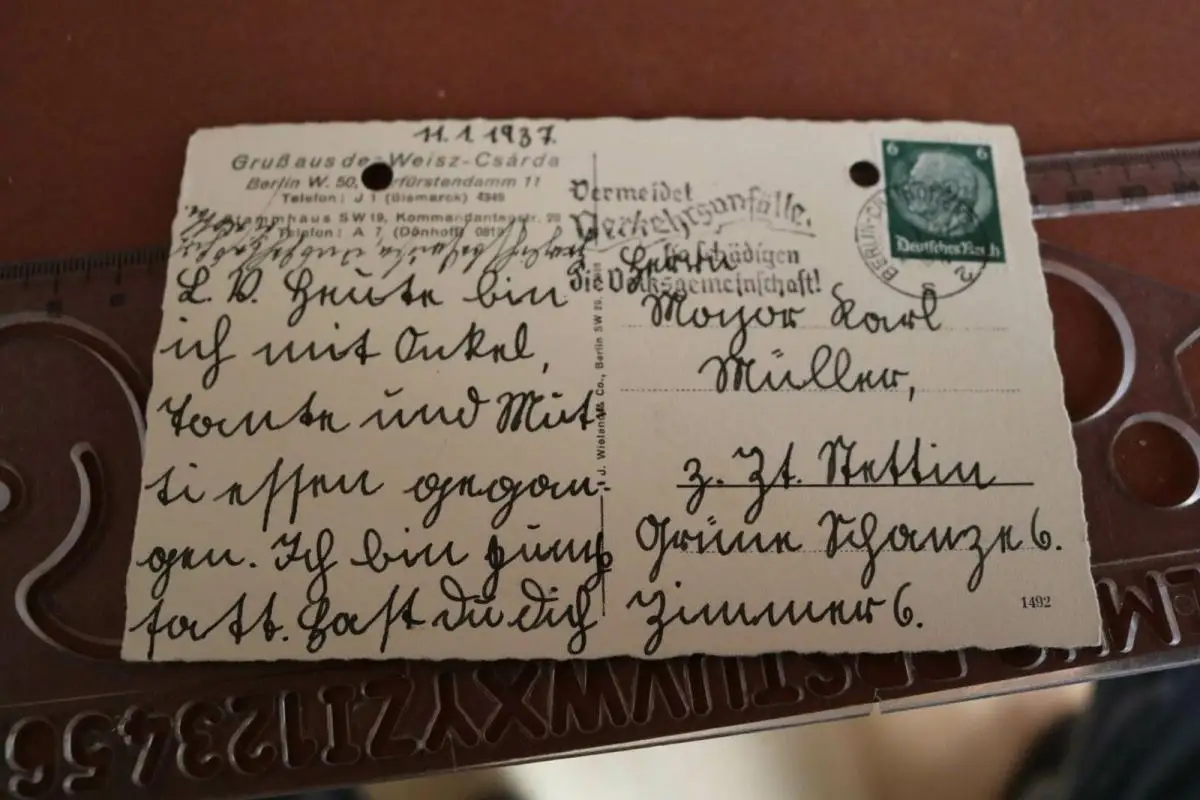 11.1.1937.
Gruß aus der Weisz-Csárda
Berlin W. 50, Kurfürstendamm 11
Telefon: J 1 (Bismarck) 4345
Stammhaus SW 19, Kommandantenstr.
Telefon: A 7 (Dönhoff)
L. V. Heute bin
ich mit Onkel,
Tante und Mut
ti essen gegan-
gen. Ich bin
satt. Hast Du Dich
J. Wieland & Co., Berlin SW
Vermeidet
Verkehrsunfälle,
sie schädigen
die Volksgemeinschaft!
6 6
Deutsches Reich
BERLIN
Herrn
Mayor Karl
Müller,
z. Zt. Stettin
Grüne Schanze 6.
Zimmer 6.
1492
STUVWXYZ1123456